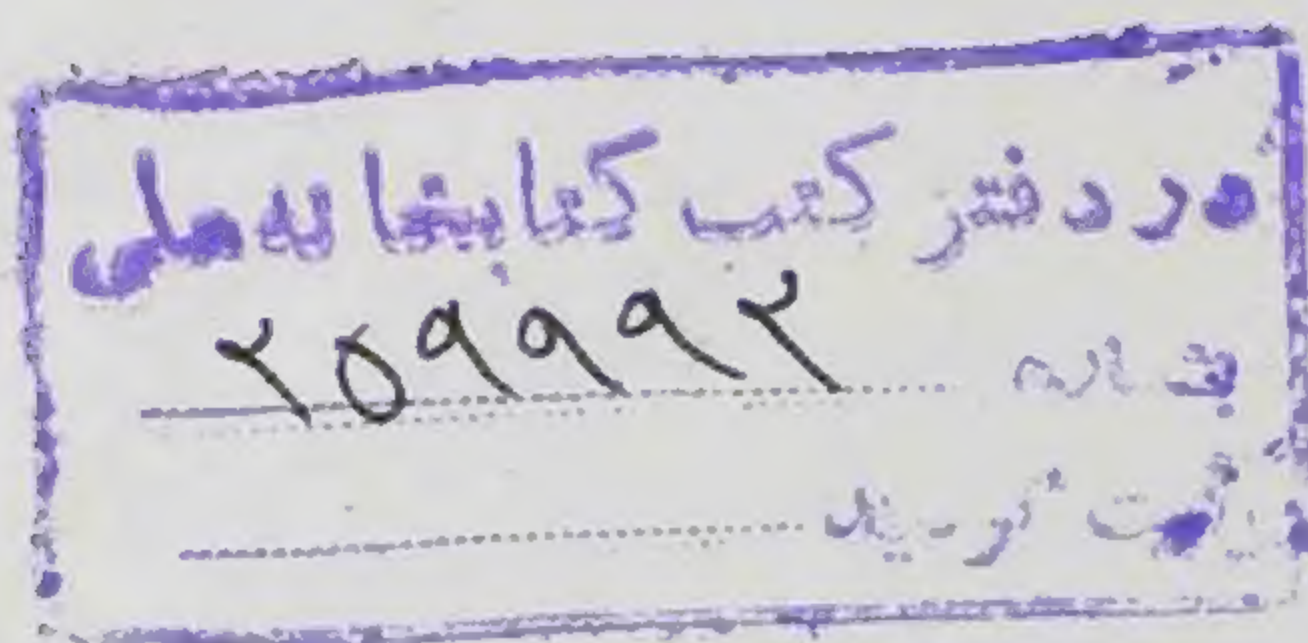 در دفتر کتب کتابخانه ملی
بشماره ۲۵۹۹۹۲
ثبت گردید